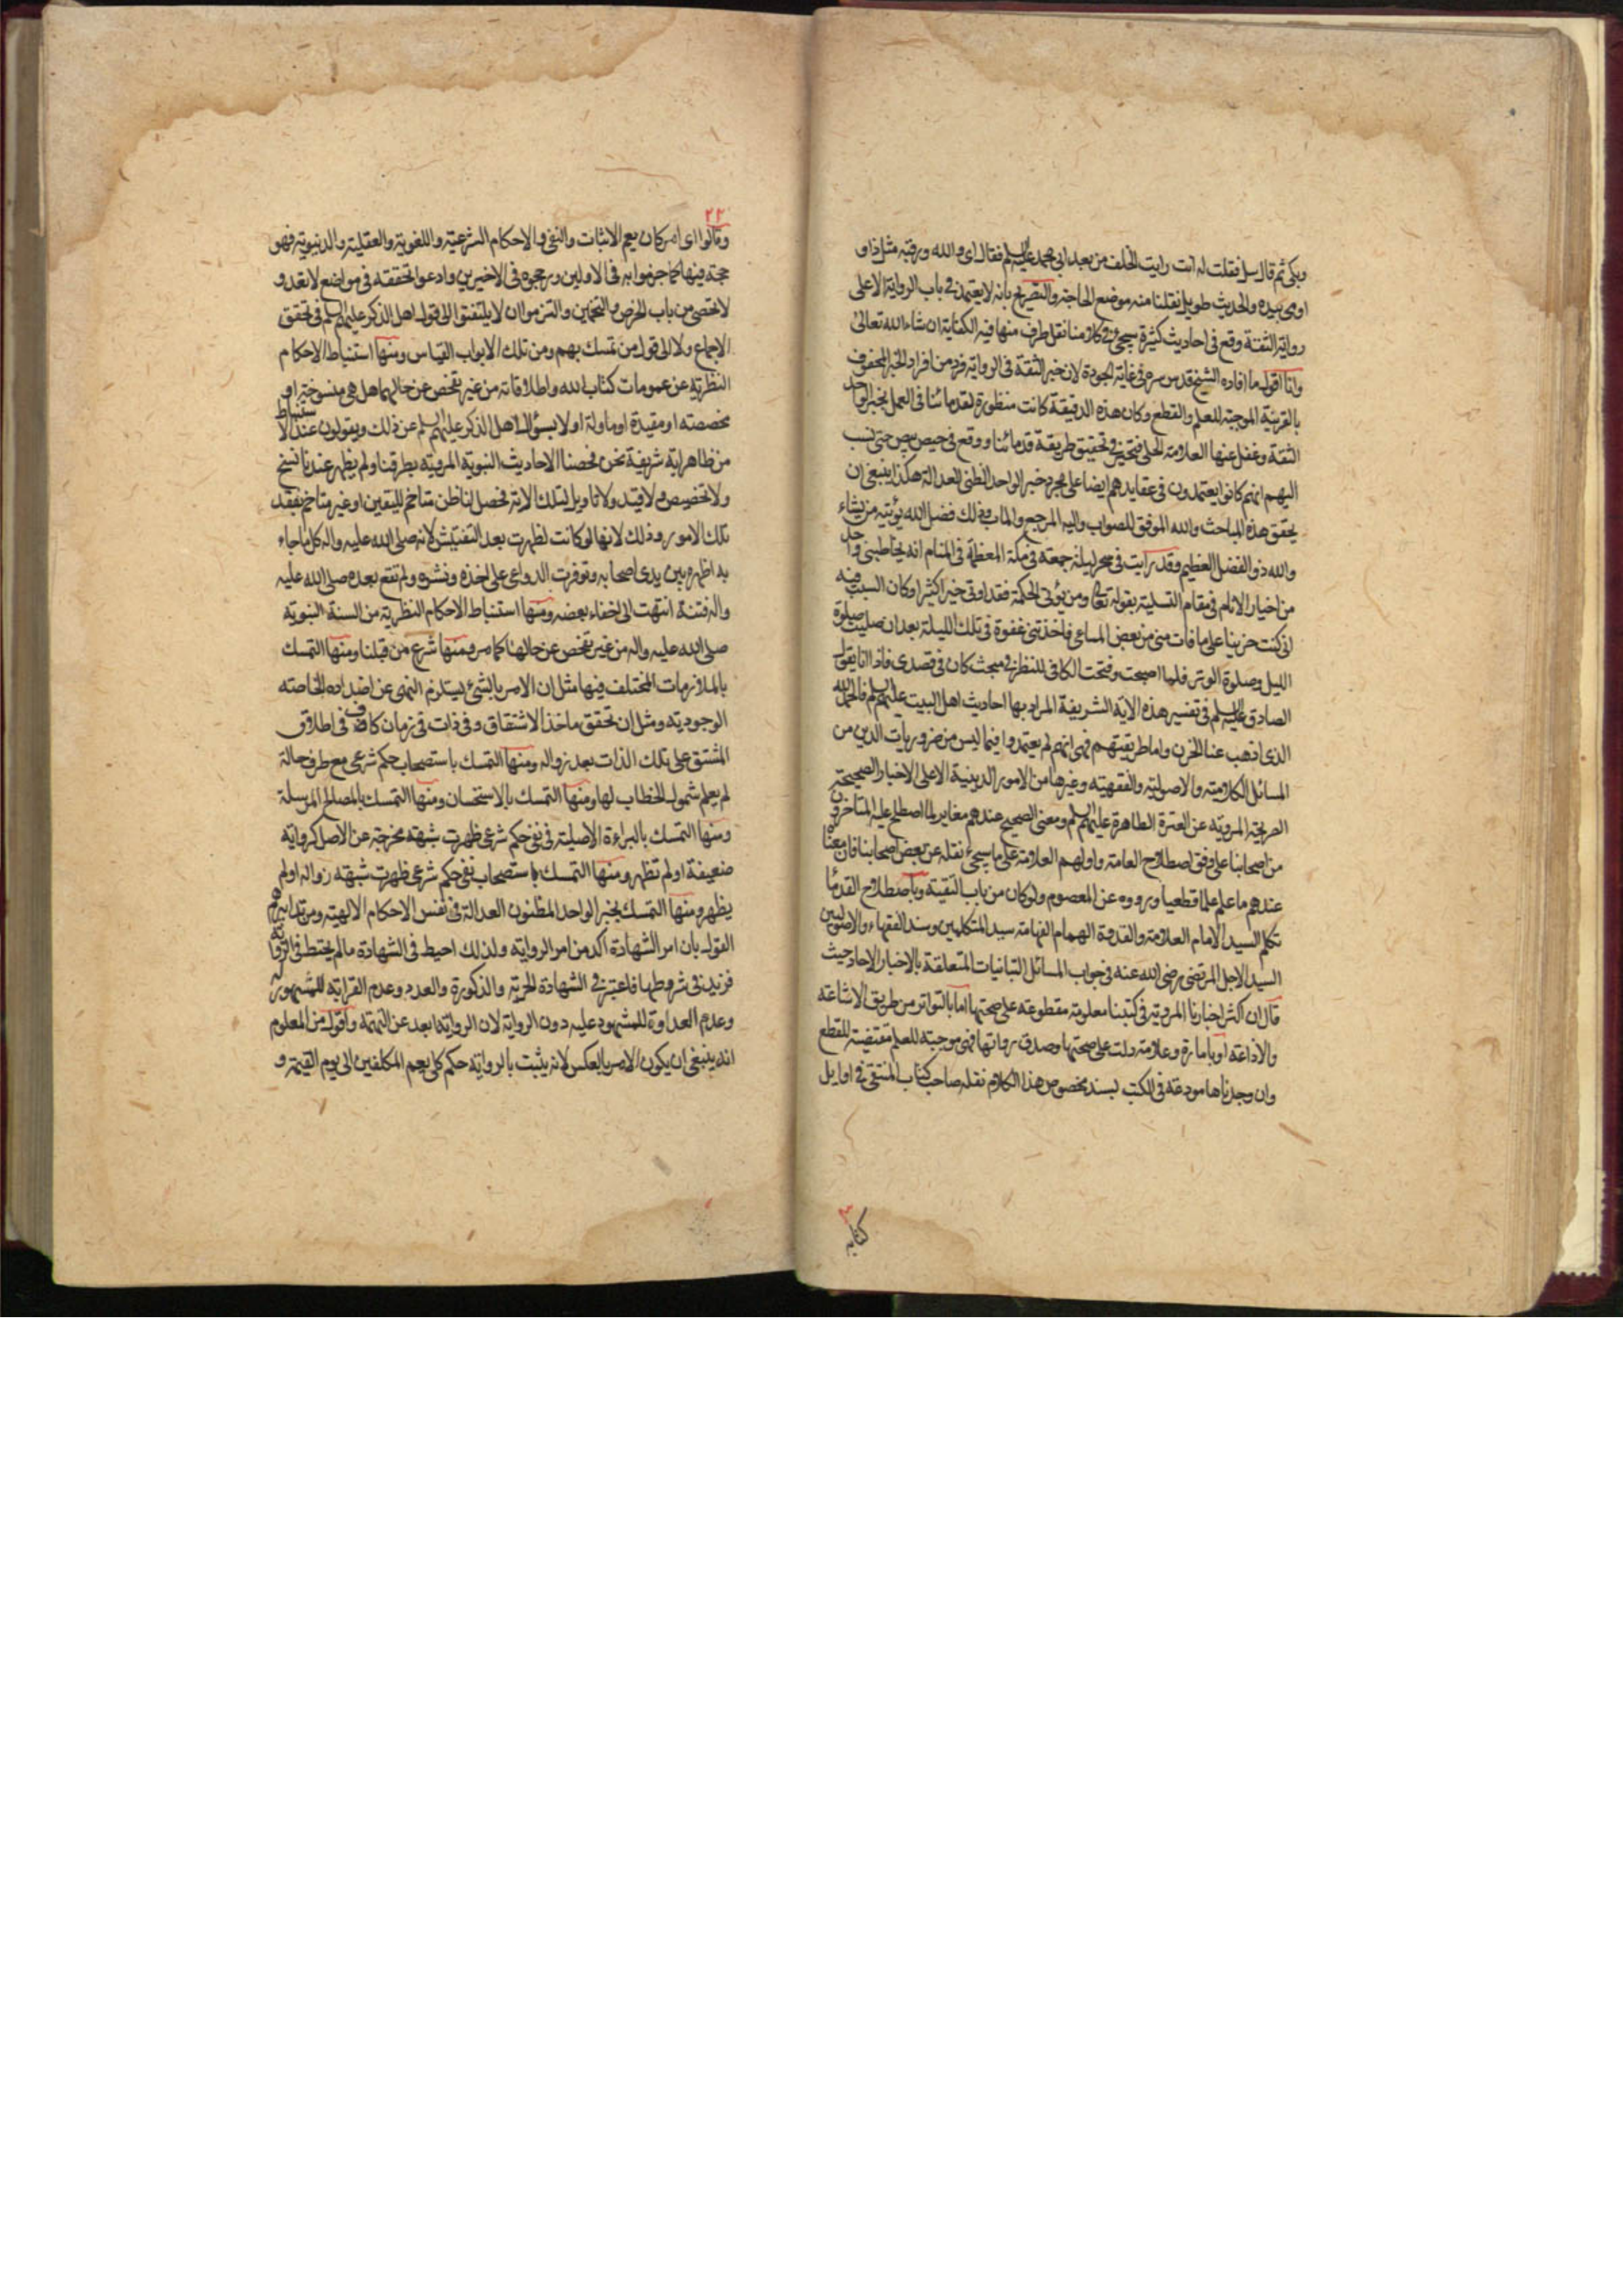 وبكى ثم قال سل فقلت له انت رايت الخلف من بعد ابي محمد عليه السلم فقال اي والله ورقبته مثل ذا و
اومى بيده والحديث طويل نقلنا منه موضع الحاجة والتصريح بانه لا يعتمد في باب الرواية الا على
رواية الثقة وقع في احاديث كثيرة سيجئ في كلامنا نقل طرف منها فيه الكفاية ان شاء الله تعالى
وانا اقول ما افاده الشيخ قدس سره في غاية الجودة لان خبر الثقة في الرواية فرد من افراد الخبر المحفوف
بالقرينة الموجبة للعلم والقطع وكان هذه الدقيقة كانت منظورة لقدمائنا في العمل بخبر الواحد
الثقة وغفل عنها العلامة الحلي فتحير في تحقيق طريقة قدمائنا ووقع في حيص بيص حتى نسب
اليهم انهم كانوا يعتمدون في عقايدهم ايضا على مجرد خبر الواحد الظني العدالة هكذا ينبغي ان
يحقق هذه المباحث والله الموفق للصواب واليه المرجع والماب وذلك فضل الله يؤتيه من يشاء
والله ذو الفضل العظيم وقد رايت في سحر ليلة جمعة في مكة المعظمة في المنام انه يخاطبني واحد
من اخيار الانام في مقام التسلية بقوله تعالى ومن يؤتى الحكمة فقد اوتي خيرا كثيرا وكان السبب فيه
اني كنت حزينا على ما فات مني من بعض المساعي فاخذتني غفوة في تلك الليلة بعد ان صليت صلوة
الليل وصلوة الوتر فلما اصبحت وفتحت الكافي للنظر في مبحث كان في قصدى فاذا انا بقول
الصادق عليه السلم في تفسير هذه الاية الشريفة المراد بها احاديث اهل البيت عليهم السلم فالحمد لله
الذي اذهب عنا الحزن واما طريقتهم فهي انهم لم يعتمدوا فيما ليس من ضروريات الدين من
المسائل الكلامية والاصولية والفقهية وغيرها من الامور الدينية الا على الاخبار الصحيحة
الصريحة المروية عن العترة الطاهرة عليهم السلم ومعنى الصحيح عندهم مغاير لما اصطلح عليه المتاخرون
من اصحابنا على وفق اصطلاح العامة واولهم العلامة على ما سيجئ نقله عن بعض اصحابنا فان معناه
عندهم ما علم علما قطعيا وروده عن المعصوم ولو كان من باب التقية وباصطلاح القدماء
تكلم السيد الامام العلامة والقدوة الهمام الفهامة سيد المتكلمين وسند الفقهاء والاصوليين
السيد الاجل المرتضى رضي الله عنه في جواب المسائل التبانيات المتعلقة بالاخبار الاحاد حيث
قال ان اكثر اخبارنا المروية في كتبنا معلومة مقطوعة على صحتها اما بالتواتر من طريق الاشاعة
والاذاعة او بامارة وعلامة دلت على صحتها وصدق رواتها فهي موجبة للعلم مقتضية للقطع
وان وجدناها مودعة في الكتب بسند مخصوص هذا الكلام نقله صاحب كتاب المنتقى في اوايل
كتابه
٢٢
وقالوا اى امر كان يعم الاثبات والنفي والاحكام الشرعية واللغوية والعقلية والدنيوية فهو
حجة فيها كما جزموا به في الاولين ورجحوه في الاخيرين وادعوا تحققه في مواضع لا تعد و
لا تحصى من باب الخرص والتخمين والتزموا ان لا يلتفتوا الى قول اهل الذكر عليهم السلم في تحقق
الاجماع ولا الى قول من تمسك بهم ومن تلك الابواب القياس ومنها استنباط الاحكام
النظرية عن عمومات كتاب الله واطلاقاته من غير تفحص عن حالهما هل هي منسوخة او
مخصصة او مقيدة او ماولة اولا بسؤال اهل الذكر عليهم السلم عن ذلك ويقولون عند الاستنباط
من ظاهر اية شريفة نحن فحصنا الاحاديث النبوية المروية بطرقنا ولم يظهر عندنا نسخ
ولا تخصيص ولا قيد ولا تاويل لتلك الاية فحصل لنا ظن متاخم لليقين او غير متاخم بفقد
تلك الامور وذلك لانها لو كانت لظهرت بعد التفتيش لانه صلى الله عليه واله كل ما جاء
به اظهره بين يدى اصحابه وتوفرت الدواعي على اخذه ونشره ولم تقع بعده صلى الله عليه
واله فتنة انتهت الى اخفاء بعضه ومنها استنباط الاحكام النظرية من السنة النبوية
صلى الله عليه واله من غير تفحص عن حالها كما مر ومنها شرع من قبلنا ومنها التمسك
بالملازمات المختلف فيها مثل ان الامر بالشئ يستلزم النهى عن اضداده الخاصة
الوجودية ومثل ان تحقق ماخذ الاشتقاق في ذات في زمان كاف في اطلاق
المشتق على تلك الذات بعد زواله ومنها التمسك باستصحاب حكم شرعي مع طرو حالة
لم يعلم شمول الخطاب لها ومنها التمسك بالاستحسان ومنها التمسك بالمصالح المرسلة
ومنها التمسك بالبراءة الاصلية في نفي حكم شرعي ظهرت شبهة مخرجة عن الاصل كرواية
ضعيفة او لم تظهر ومنها التمسك باستصحاب نفي حكم شرعي ظهرت شبهة زواله او لم
يظهر ومنها التمسك بخبر الواحد المظنون العدالة في نفس الاحكام الالهية ومن تدابيرهم
القول بان امر الشهادة اكد من امر الرواية ولذلك احيط في الشهادة ما لم يحتط في الرواية
فزيد في شروطها فاعتبر في الشهادة الحرية والذكورة والعدد وعدم القرابة للمشهود له
وعدم العداوة للمشهود عليه دون الرواية لان الرواية ابعد عن التهمة واقول من المعلوم
انه ينبغي ان يكون الامر بالعكس لانه يثبت بالرواية حكم كلي يعم المكلفين الى يوم القيمة و